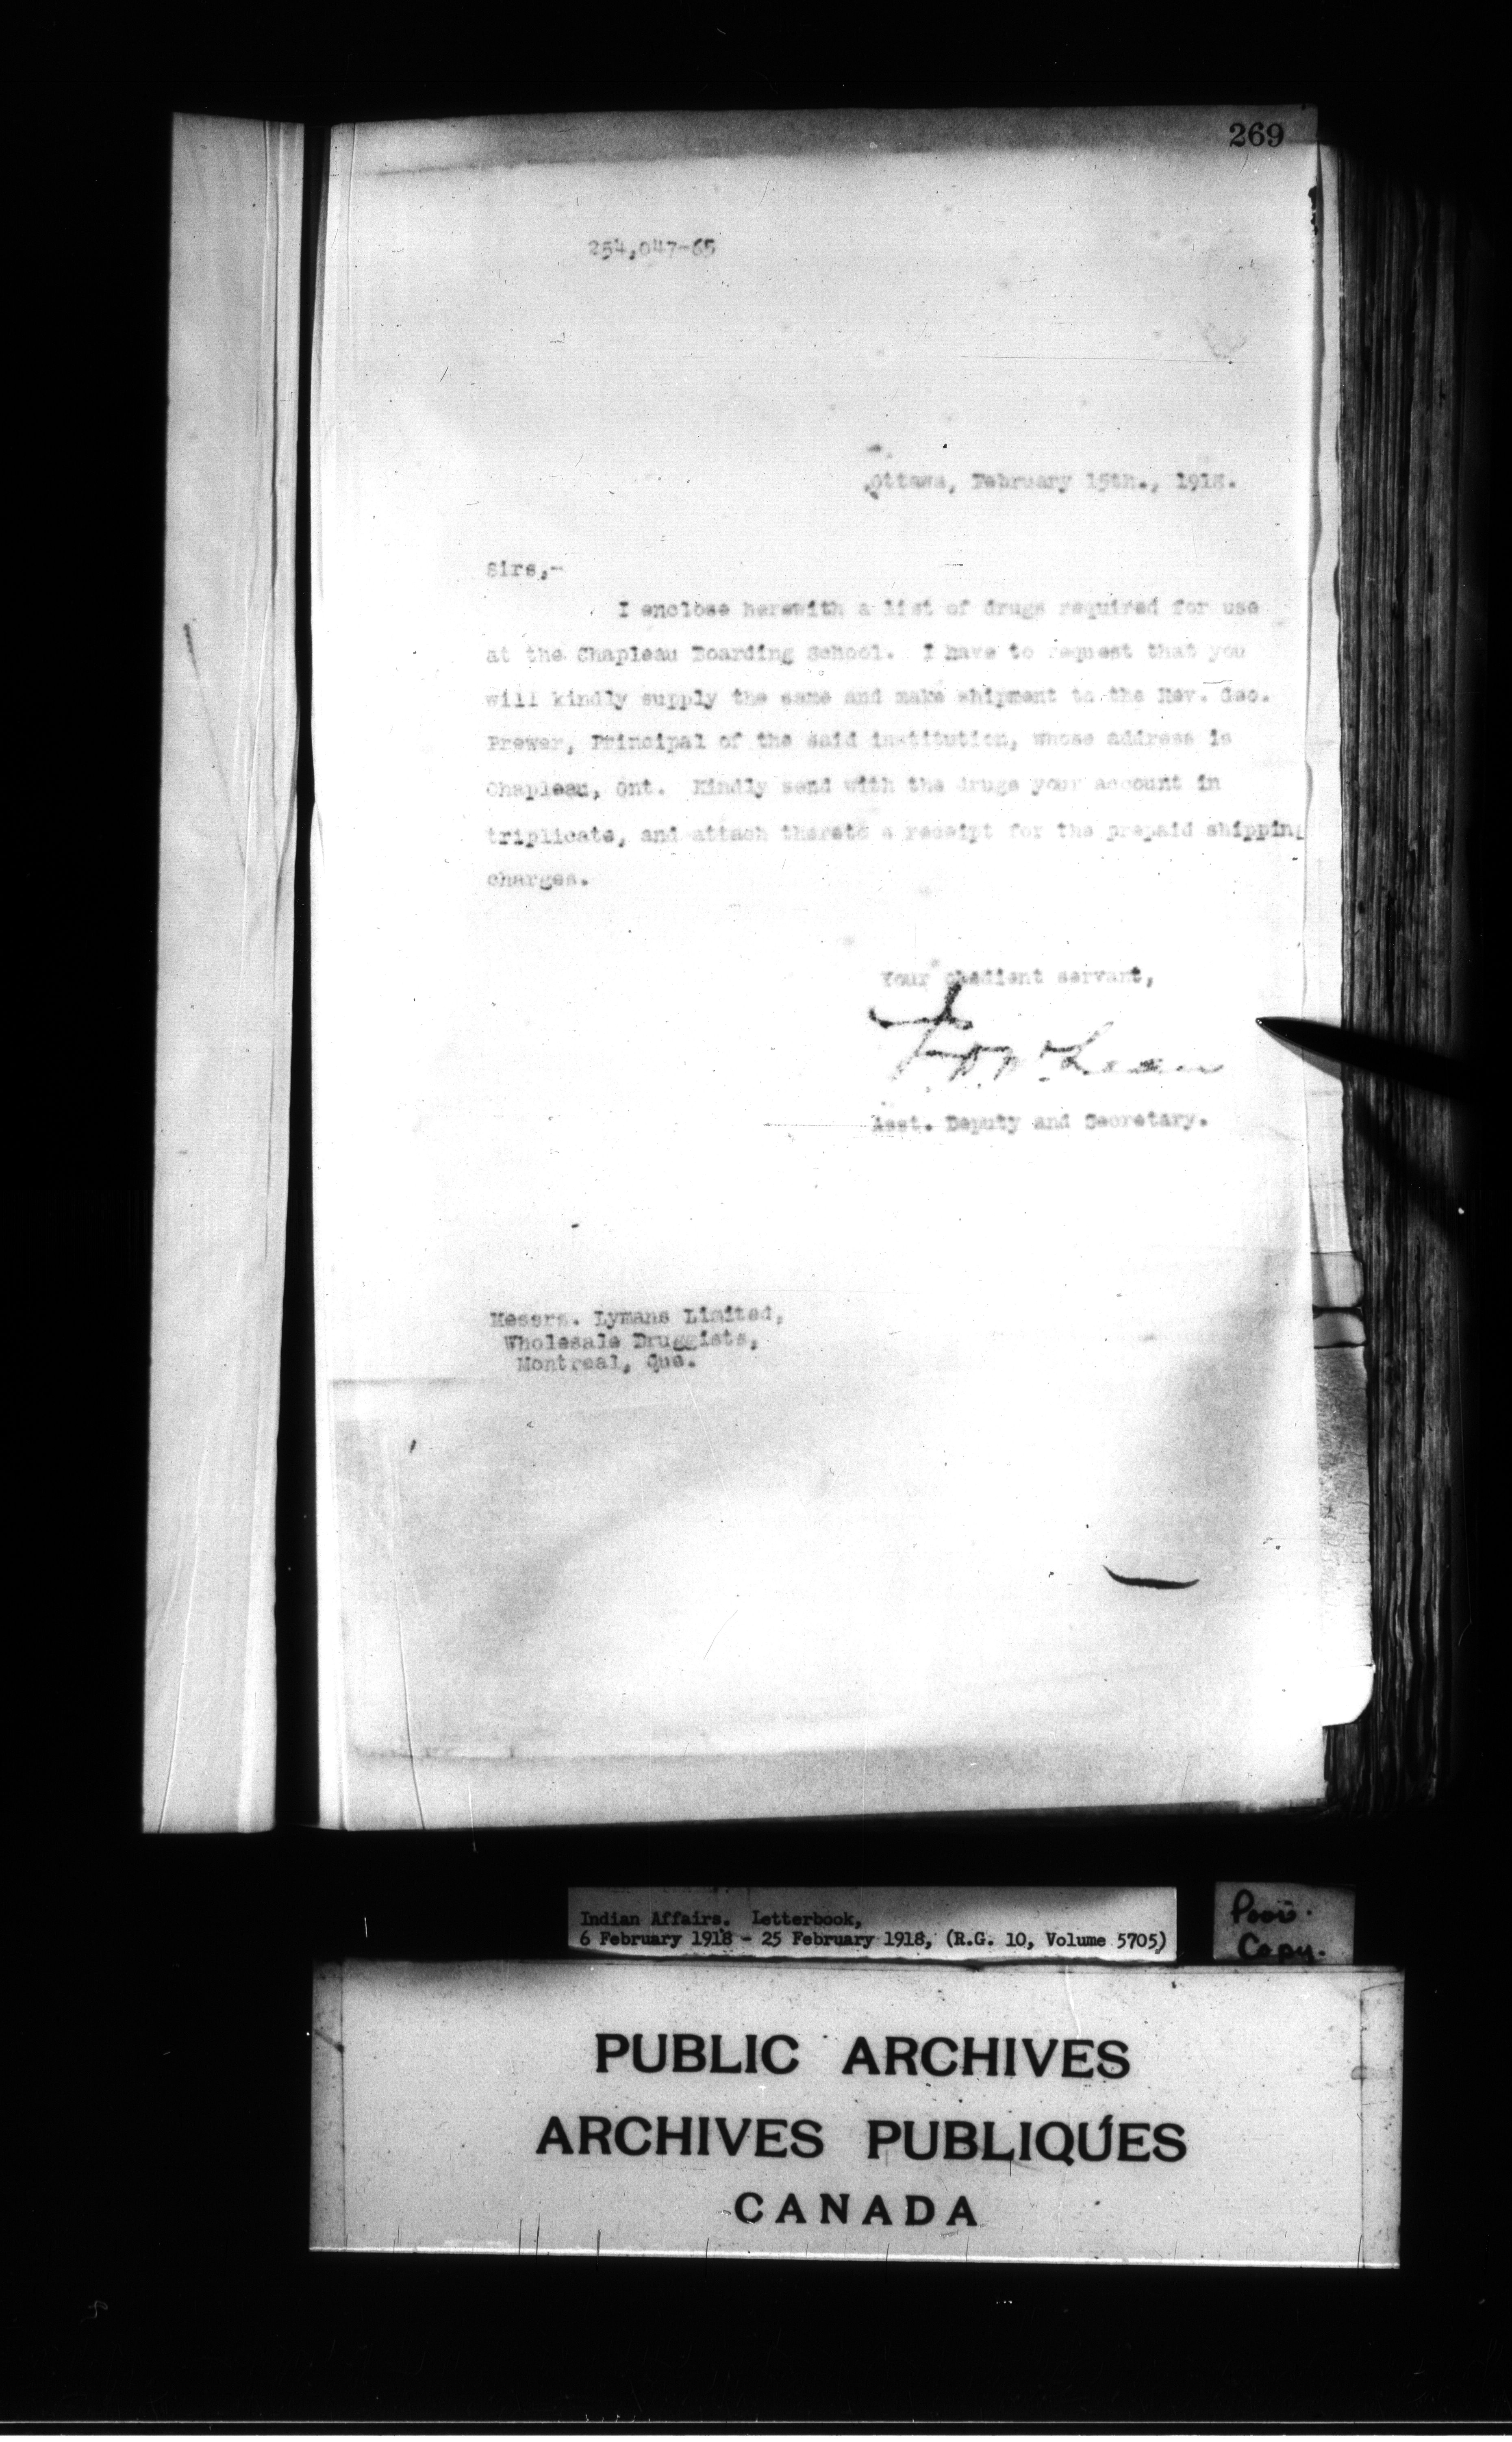 269
254,047-65
Ottawa, February 15th., 1918.
Sirs,-
I enclose herewith a list of drugs required for use
at the Chapleau Boarding School. I have to request that you
will kindly supply the same and make shipment to the Rev. Geo.
Prewer, Principal of the said institution, whose address is
Chapleau, Ont. Kindly send with the drugs your account in
triplicate, and attach thereto a receipt for the prepaid shipping
charges.
Your obedient servant,
Asst. Deputy and Secretary.
Messrs. Lymans Limited,
Wholesale Druggists,
Montreal, Que.
Indian Affairs. Letterbook,
6 February 1918 - 25 February 1918, (R.G. 10, Volume 5705)
Poor
Copy.
PUBLIC ARCHIVES
ARCHIVES PUBLIQUES
CANADA